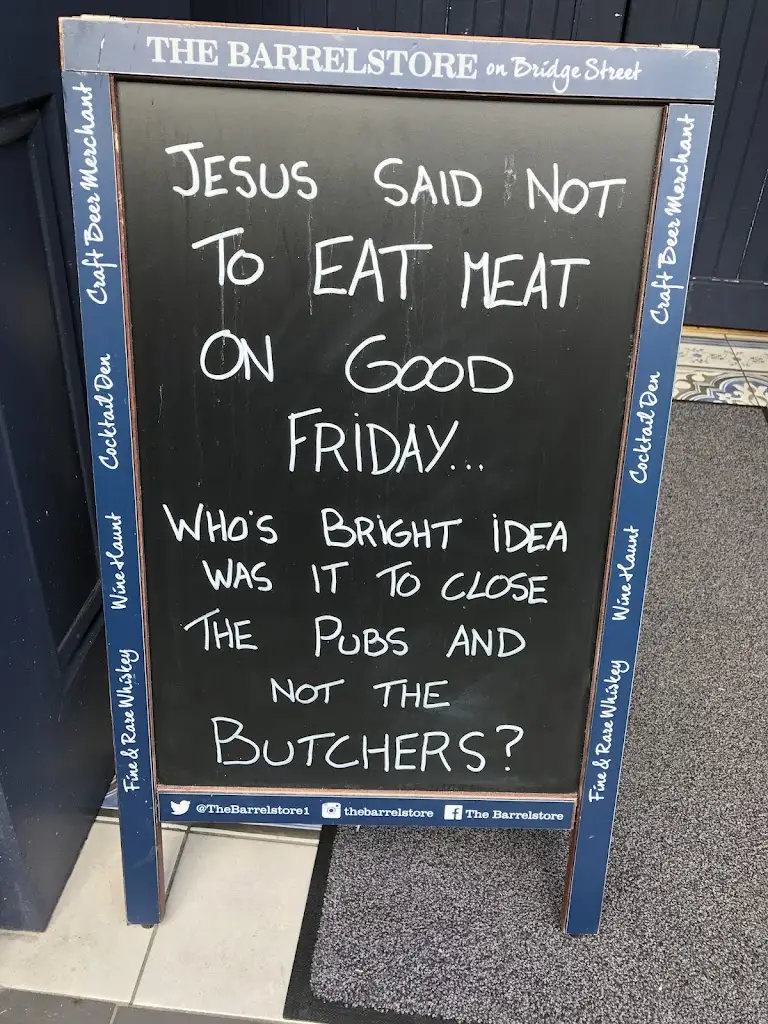 THE BARRELSTORE on Bridge Street
JESUS SAID NOT
TO EAT MEAT
ON GOOD
FRIDAY...
WHO'S BRIGHT IDEA
WAS IT TO CLOSE
THE PUBS AND
NOT THE
BUTCHERS?
Craft Beer Merchant
Cocktail Den
Wine Haunt
Fine & Rare Whiskey
Craft Beer Merchant
Cocktail Den
Wine Haunt
Fine & Rare Whiskey
@TheBarrelstore1 thebarrelstore The Barrelstore